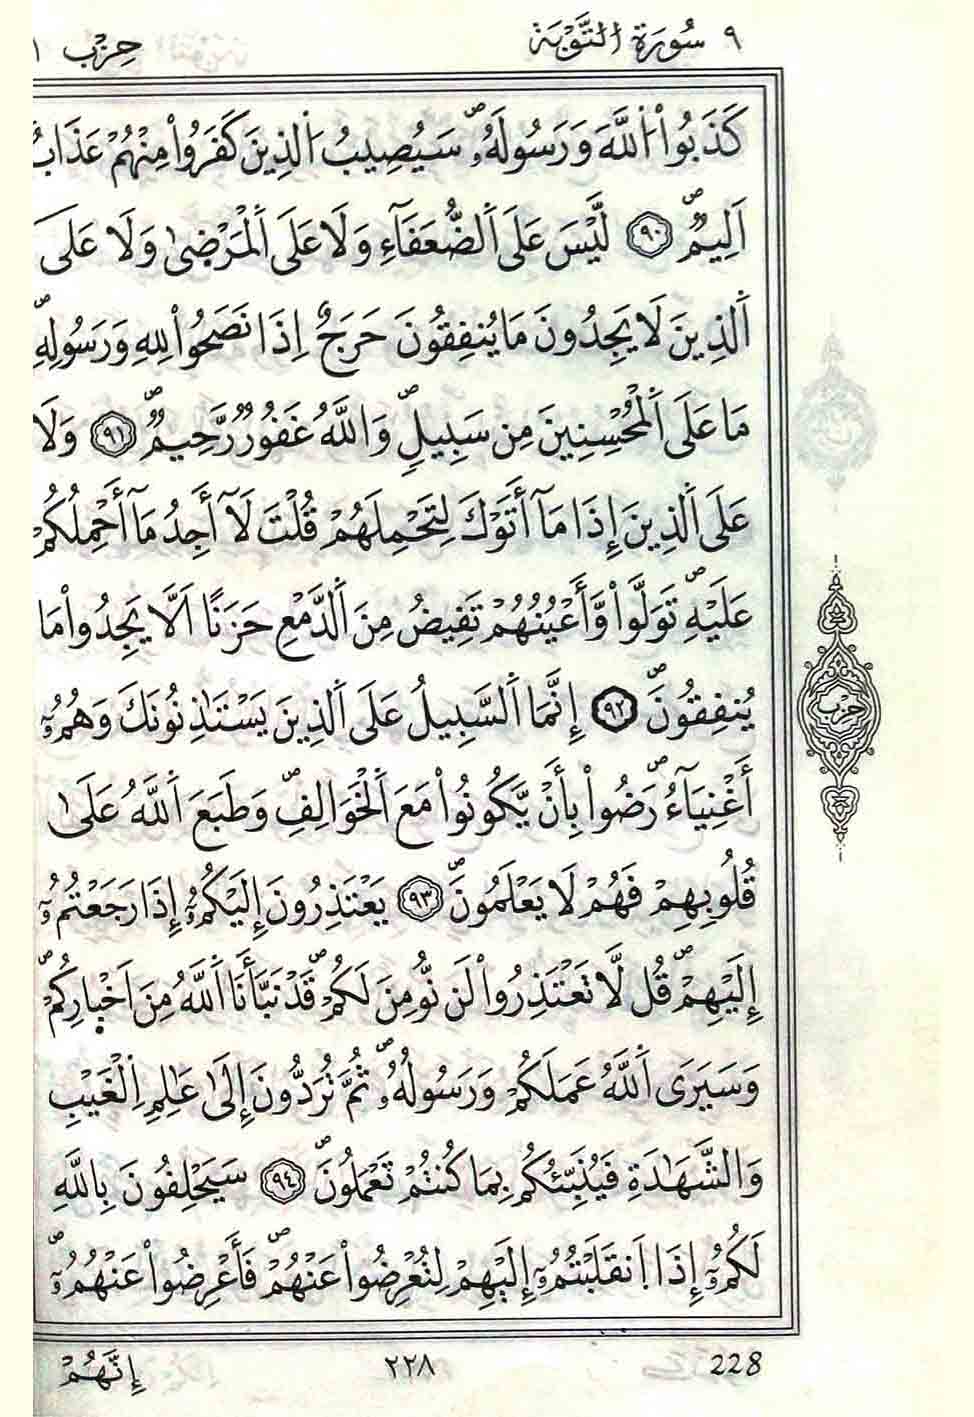 ٩ سُورَةُ التَّوْبَةِ حِزْب ١
كَذَبُواْ اللَّهَ وَرَسُولَهُۥ سَيُصِيبُ الذِينَ كَفَرُواْ مِنْهُمْ عَذَابٌ
اَلِيمٌ ٩٠ لَّيْسَ عَلَى الضُّعَفَآءِ وَلَا عَلَى الْمَرْضِىٰ وَلَا عَلَى
الذِينَ لَا يَجِدُونَ مَا يُنفِقُونَ حَرَجٌ اِذَا نَصَحُواْ لِلهِ وَرَسُولِهِ
مَا عَلَى الْمُحْسِنِينَ مِن سَبِيلٍ وَاللَّهُ غَفُورٌ رَّحِيمٌ ٩١ وَلَا
عَلَى الذِينَ إِذَا مَآ أَتَوْكَ لِتَحْمِلَهُمْ قُلْتَ لَآ أَجِدُ مَآ أَحْمِلُكُمْ
عَلَيْهِ تَوَلَّواْ وَّأَعْيُنُهُمْ تَفِيضُ مِنَ الدَّمْعِ حَزَنًا اَلَّا يَجِدُواْ مَا
يُنفِقُونَ ٩٢ إِنَّمَا السَّبِيلُ عَلَى الذِينَ يَسْتَٰذِنُونَكَ وَهُمُۥٓ
أَغْنِيَآءُ رَضُواْ بِأَنْ يَّكُونُواْ مَعَ الْخَوَالِفِ وَطَبَعَ اللَّهُ عَلَىٰ
قُلُوبِهِمْ فَهُمْ لَا يَعْلَمُونَ ٩٣ يَعْتَذِرُونَ إِلَيْكُمُۥٓ إِذَا رَجَعْتُمُۥٓ
إِلَيْهِمْ قُل لَّا تَعْتَذِرُواْ لَن نُّومِنَ لَكُمْ قَدْ نَبَّأَنَا اللَّهُ مِنَ اَخْبِارِكُمْ
وَسَيَرَى اللَّهُ عَمَلَكُمْ وَرَسُولُهُۥ ثُمَّ تُرَدُّونَ إِلَىٰ عَٰلِمِ الْغَيْبِ
وَالشَّهَٰدَةِ فَيُنَبِّئُكُم بِمَا كُنتُمْ تَعْمَلُونَ ٩٤ سَيَحْلِفُونَ بِاللَّهِ
لَكُمُۥٓ إِذَا اَنقَلَبْتُمُۥٓ إِلَيْهِمْ لِتُعْرِضُواْ عَنْهُمْ فَأَعْرِضُواْ عَنْهُمُۥٓ
حِزْب
228 ٢٢٨ إِنَّهُمْ